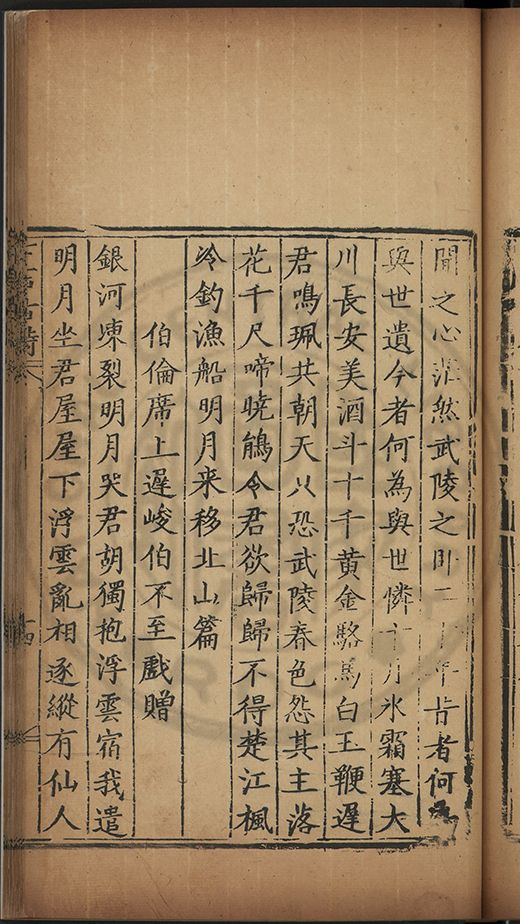 聞之心茫然武陵之卧二十年昔者何
與世遺今者何為與世憐十月氷霜塞大
川長安美酒斗十千黄金駱馬白玉鞭遲
君鳴珮共朝天只恐武陵春色怨其主落
花千尺啼曉鵑令君欲歸歸不得楚江楓
冷釣漁船明月来移北山篇
伯倫席上遲峻伯不至戲贈
銀河凍裂明月哭君胡獨抱浮雲宿我遣
明月坐君屋屋下浮雲亂相逐縱有仙人